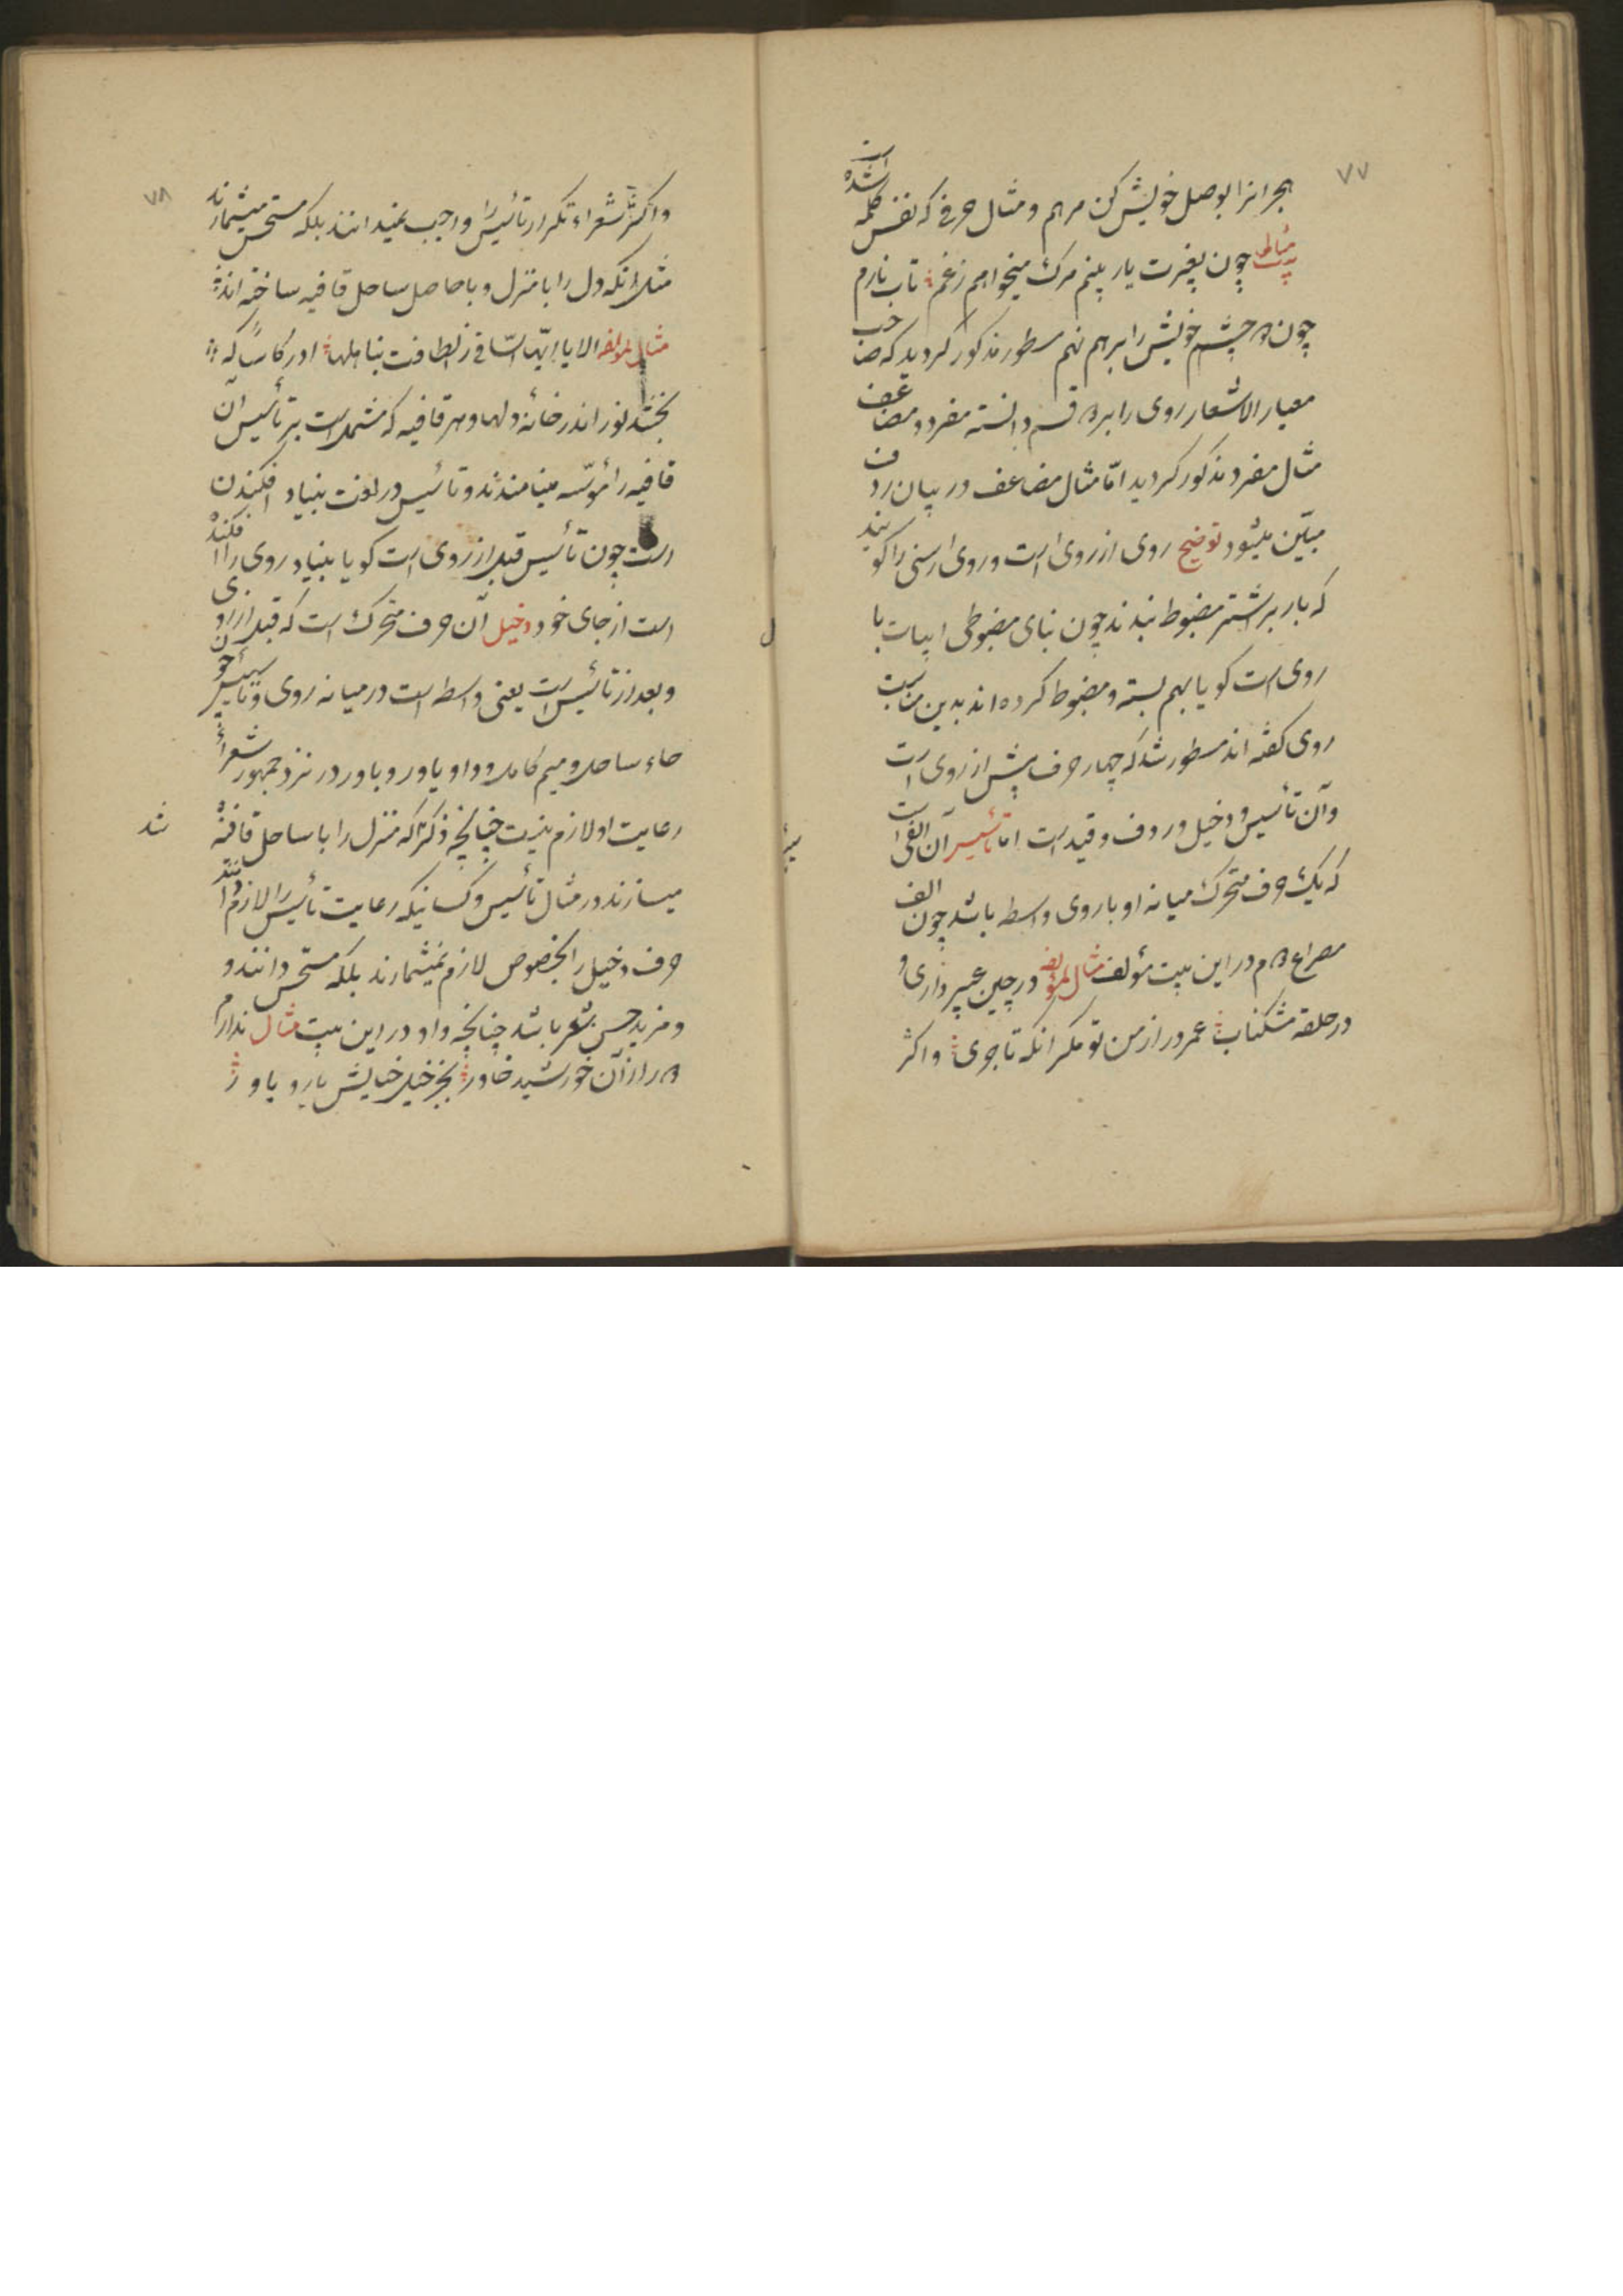 ۷۷
هجر انرا بوصل خویش کن مرهم و مثال حرفی که نفس کلمه
چون بغیرت یار بینم مرک میخواهم زغم تاب نارم
چون چشم خویش را برهم نهم مسطور مذکور کردید که صاحب
معیار الاشعار روی را بر قسم دانسته مفرد و مضاعف
مثال مفرد مذکور کردید امّا مثال مضاعف در بیان ردف
مبیّن میشود توضیح روی از رواست و روا رسنی را کویند
که بار بر شتر مضبوط بندند چون بنای مضبوطی ابیات با
روی است کویا بهم بسته و مضبوط کرده اند بدین مناسبت
روی کفته اند مسطور شد که چهار حرف پیش از روی است
وآن تأسیس و دخیل و ردف و قید است اما تأسیس آن الفی است
که یک حرف متحرک میانه او با روی واسطه باشد چون الف
مصراع در این بیت مؤلف مثال لمؤلفه در چین عبیر داری و
در حلقه مشکناب عمر دراز من تو مکر انکه تا جوی واکثر
۷۸
واکثر شعراء تکرار تأسیس را واجب نمیدانند بلکه مستحسن میشمارند
مثل انکه دل را با منزل و با حاصل ساحل قافیه ساخته اند
مثال لمؤلفه الا یا ایّها السّاقی ز الطافت بناهلها ادر کاساً که
بخشد نور اندر خانه دلها و هر قافیه که مشتمل است بر تأسیس آن
قافیه را مؤسّسه مینامند و تأسیس در لغت بنیاد افکندن
است چون تأسیس قبل از روی است کویا بنیاد روی را افکنده
است از جای خود دخیل آن حرف متحرک است که قبل از روی
وبعد از تأسیس است یعنی واسطه است در میانه روی و تأسیس چون
حاء ساحل و میم کامل و واو یاور و باور در نزد جمهور شعراء
رعایت او لازم نیست چنانچه ذکر شد که منزل را با ساحل قافیه
میسازند در مثال تأسیس و کسانیکه رعایت تأسیس را لازم دانند
حرف دخیل را بخصوص لازم نمیشمارند بلکه مستحسن دانند و
و مزید حسن شعر باشد چنانچه واو در این بیت مثال ندارم
در از آن خورشید خاور بجز خیل خیالش یار و یاور